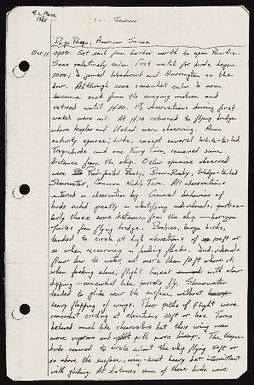 1965
Journal
Pago Pago, American Samoa
Oct 11 0900. Set sail from harbor north to open Pacific.
Seas relatively calm. First watch for birds began
1000, I joined Woodward and Harrington on the
bow. Although seas somewhat calm I soon
became sick from the surging motion and
retired until 1120. My observations during first
watch were nil. At 1130 returned to flying bridge
where Kepler and were observing.
activity sparse; birds, except several White-tailed
Tropicbirds and one Fairy Tern, remained some
distance from the ship. Other species observed
were Red-footed Booby, Brown Booby, Wedge-tailed
Shearwater, Common Noddy Tern. All observations
entered in observation log. General behavior of
birds aided greatly in identifying individuals, particu-
larly those some distance from the ship —
from flying bridge. Boobies, large birds,
tended to circle at high elevations of 100 feet or
so when occurring in feeding flocks. Individuals
flew low to water, not more than 10 ft above it;
when feeding alone, flight linear with slow
dipping — somewhat like
tended to glide near the surface without
heavy flapping of wings. Their paths of flight were
somewhat circling at elevations 20 ft or less. Terns
behaved much like shearwaters but their wings were
more vigorous and with more linear. The tropic-
birds seemed to circle about the ship flying 50 ft or
so above the surface, wing-beat heavy but intermittent
with gliding. At distances some of these birds were